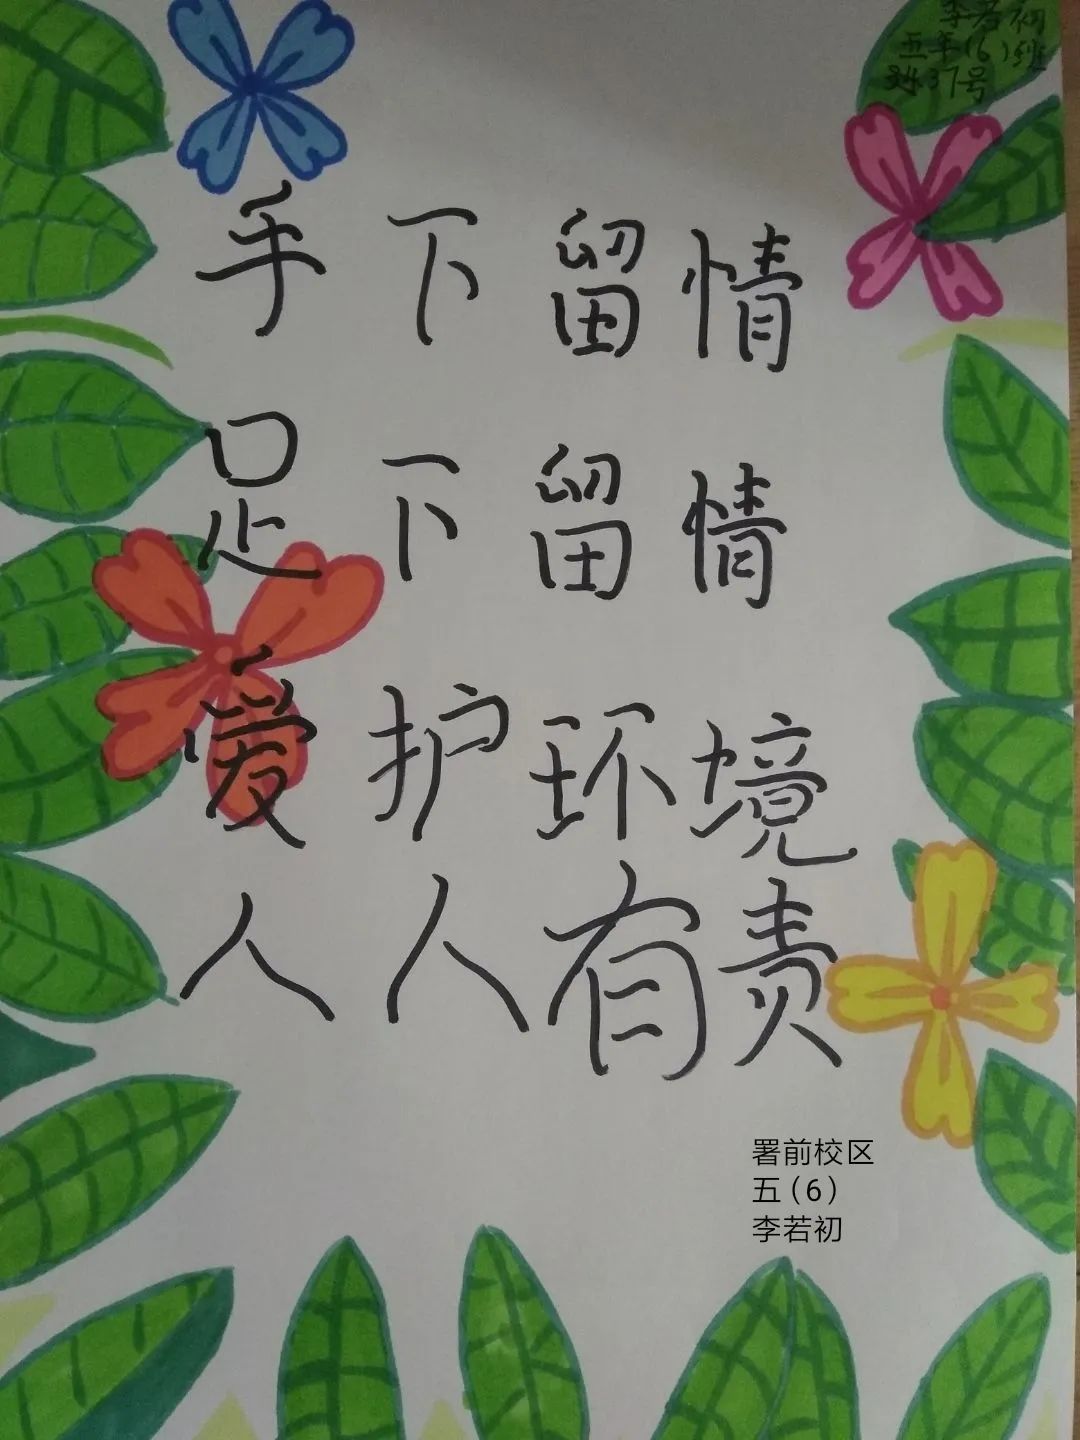 李若初
五年(6)班
37号
手下留情
足下留情
爱护环境
人人有责
署前校区
五(6)
李若初